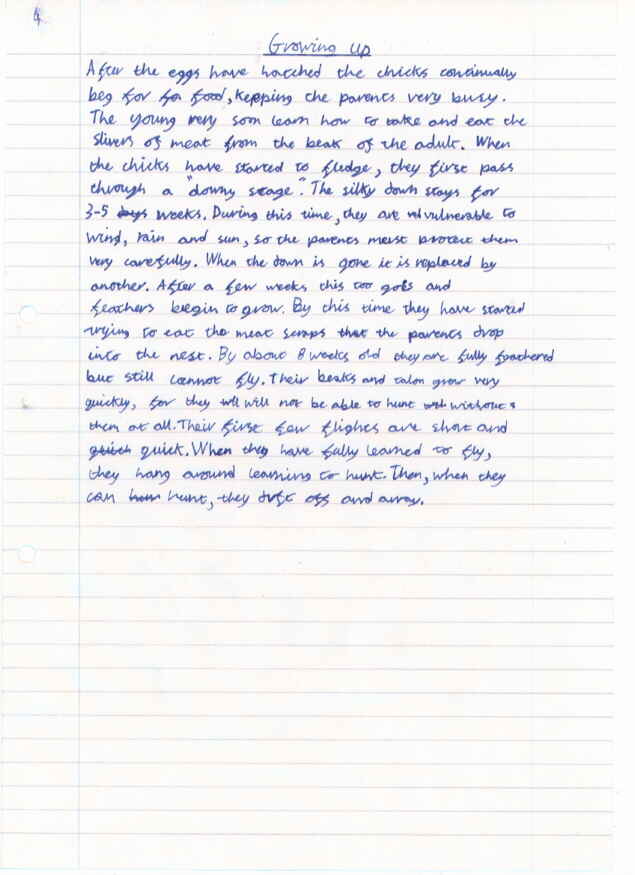 4
Growing up
After the eggs have hatched the chicks continually
beg for for food, Kepping the parents very busy.
The young very soon learn how to take and eat the
slivers of meat from the beak of the adult. When
the chicks have started to fledge, they first pass
through a "downy stage". The silky down stays for
3-5 days weeks. During this time, they are vulnerable to
wind, rain and sun, so the parents must protect them
very carefully. When the down is gone it is replaced by
another. After a few weeks this too goes and
feathers begin to grow. By this time they have started
trying to eat the meat scraps that the parents drop
into the nest. By about 8 weeks old they are fully feathered
but still cannot fly. Their beaks and talon grow very
quickly, for they will will not be able to hunt without
them at all. Their first few flights are short and
quick. When they have fully learned to fly,
they hang around learning to hunt. Then, when they
can hunt, they drift off and away.